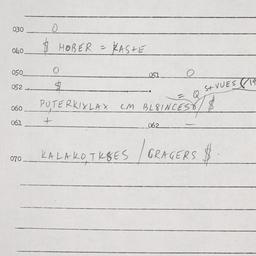 030 0
040 $ HOBER = KASTE
050 0 051 0
052 $ = Q STVUES
060 PUTERKIXLAX CM BLBINCESO / $
061 + 062 —
070 KALAKOTKSES / GRAGERS $.